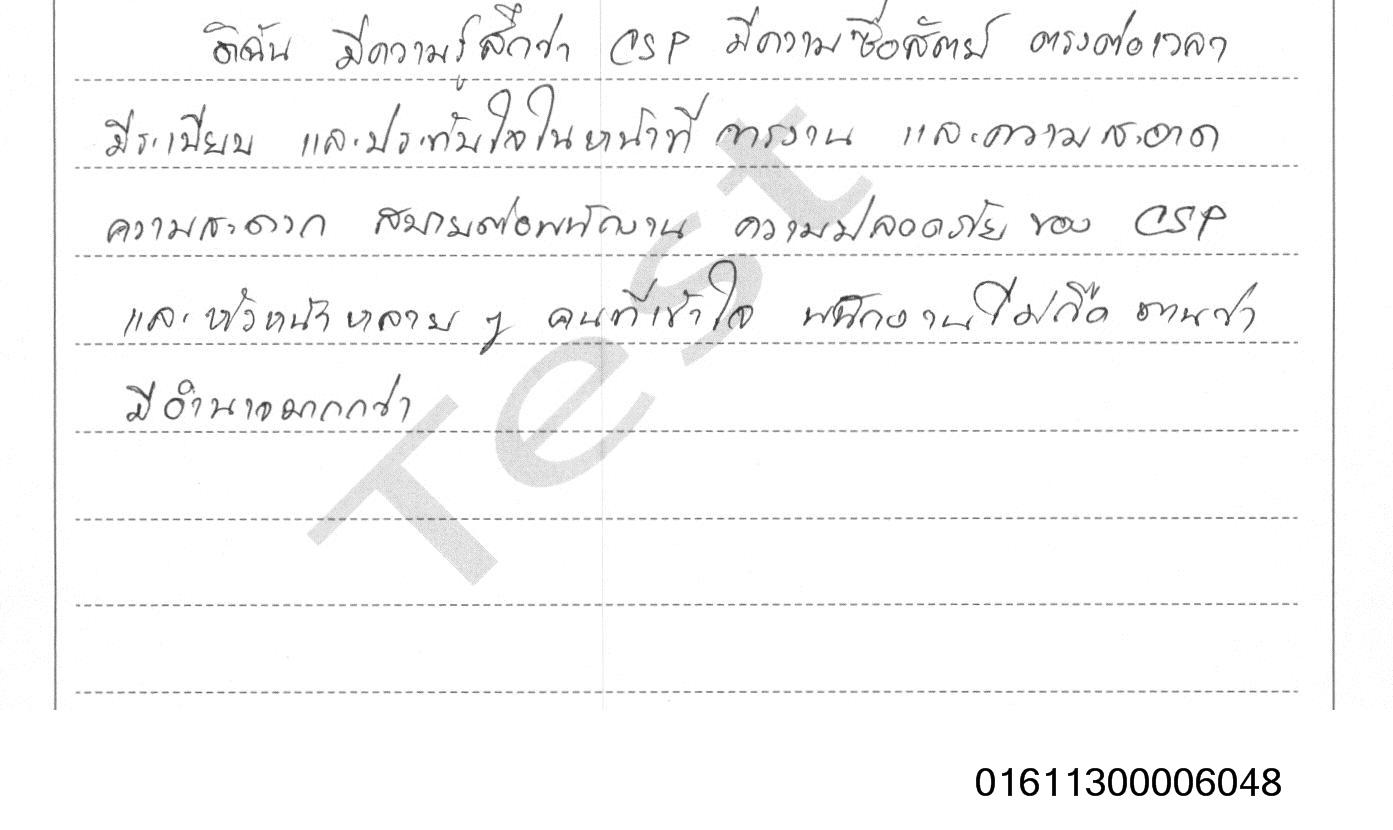 ดิฉัน มีความรู้สึกว่า CSP มีความซื่อสัตย์ ตรงต่อเวลา
มีระเบียบ และประทับใจในหน้าที่ การงาน และความสะอาด
ความสะดวก สบายต่อพนักงาน ความปลอดภัย ของ CSP
และหัวหน้าหลาย ๆ คนที่เข้าใจ พนักงานไม่ถือ ตนว่า
มีอำนาจมากกว่า
Test
01611300006048